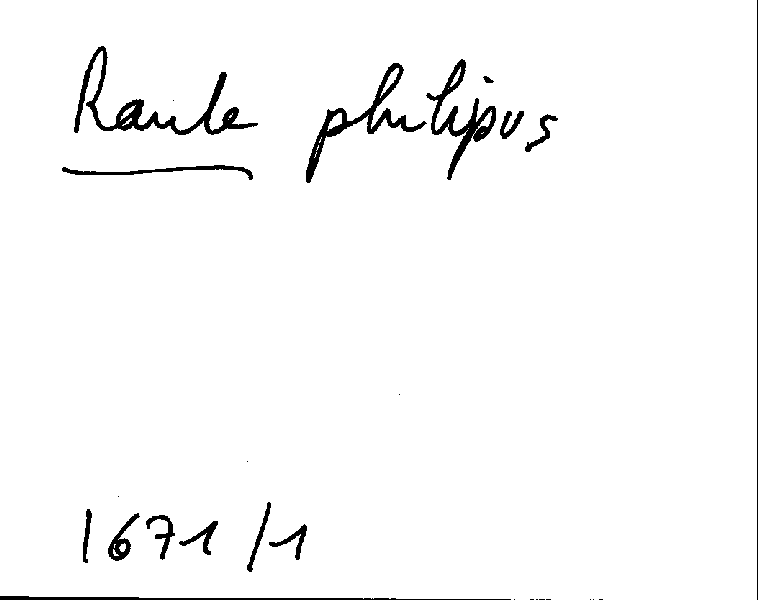 Raule philipus
1671/1